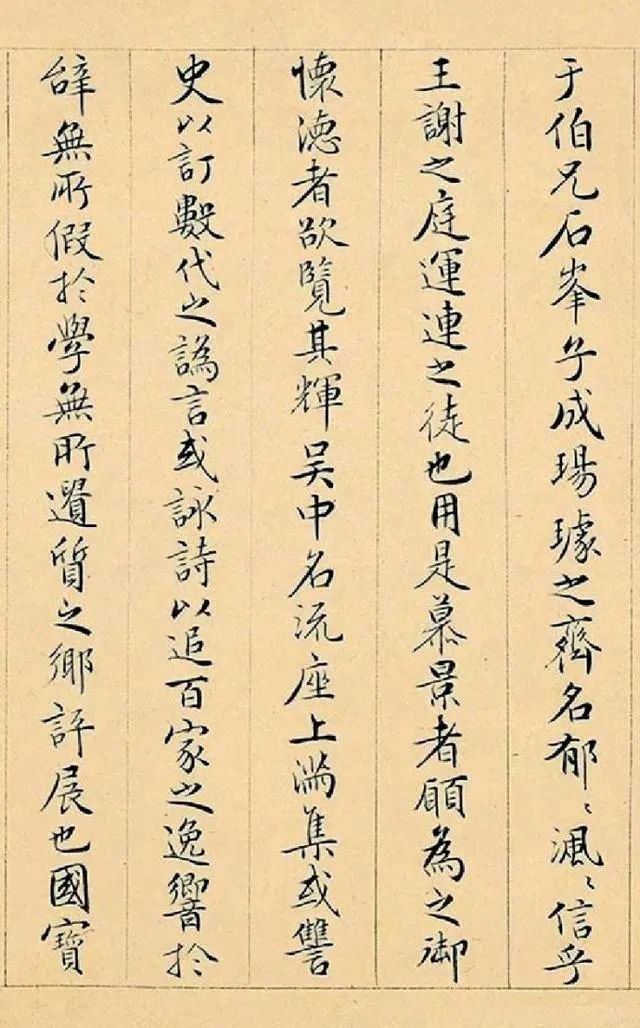 于伯兄石峯子成瑒璩之齊名郁〻渢〻信乎
王謝之庭運連之徒也用是慕景者願為之御
懷德者欲覽其輝吳中名流座上滿集或讐
史以訂數代之譌言或詠詩以追百家之逸響於
辝無所假於學無所遺質之鄉評展也國寶